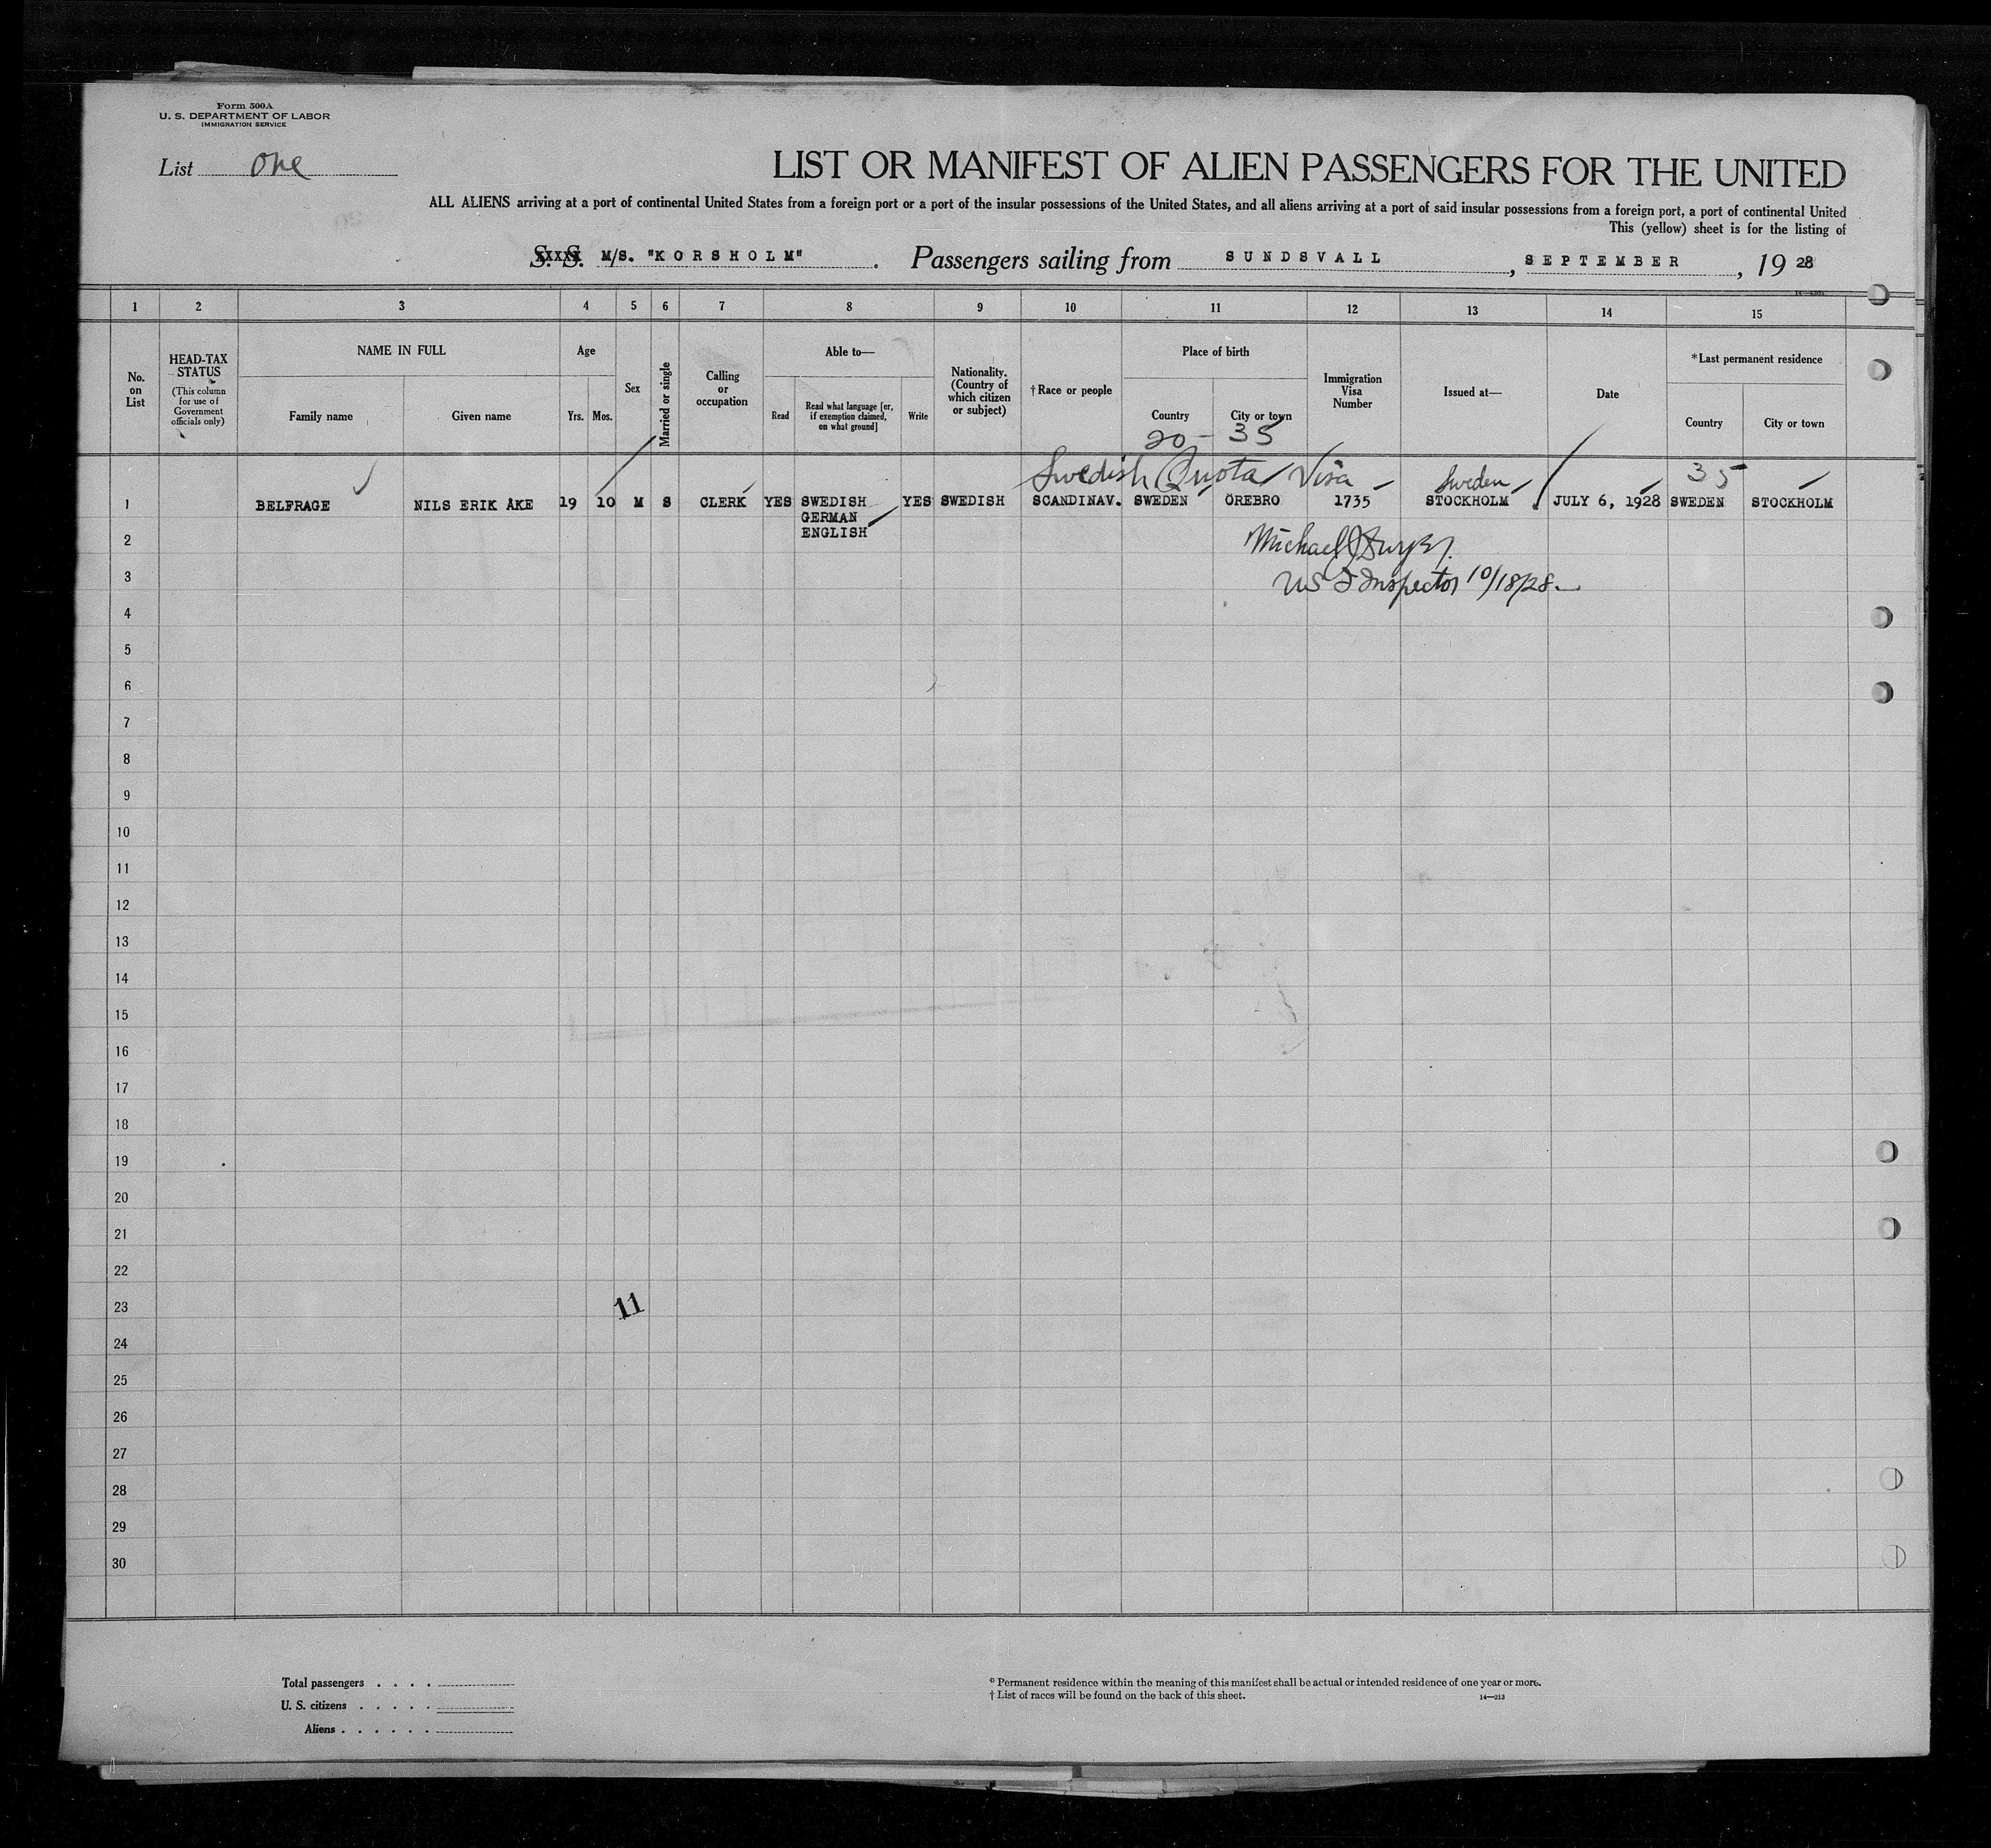 Form 500A
U. S. DEPARTMENT OF LABOR
IMMIGRATION SERVICE
List one
LIST OR MANIFEST OF ALIEN PASSENGERS FOR THE UNITED
ALL ALIENS arriving at a port of continental United States from a foreign port or a port of the insular possessions of the United States, and all aliens arriving at a port of said insular possessions from a foreign port, a port of continental United
This (yellow) sheet is for the listing of
S. S. M/S. "KORSHOLM" . Passengers sailing from SUNDSVALL , SEPTEMBER , 19 28
1 2 3 4 5 6 7 8 9 10 11 12 13 14 15
No. on List
HEAD-TAX STATUS (This column for use of Government officials only)
NAME IN FULL
Family name Given name
Age
Yrs. Mos.
Sex
Married or single
Calling or occupation
Able to—
Read Read what language [or, if exemption claimed, on what ground] Write
Nationality. (Country of which citizen or subject)
†Race or people
Place of birth
Country City or town
Immigration Visa Number
Issued at—
Date
*Last permanent residence
Country City or town
20 - 35
Swedish Quota Visa Sweden 35
1 BELFRAGE NILS ERIK ÅKE 19 10 M S CLERK YES SWEDISH YES SWEDISH SCANDINAV. SWEDEN ÖREBRO 1735 STOCKHOLM JULY 6, 1928 SWEDEN STOCKHOLM
GERMAN
ENGLISH
2 Michael
3 US I Inspector 10/18/28
4
5
6
7
8
9
10
11
12
13
14
15
16
17
18
19
20
21
22
23 11
24
25
26
27
28
29
30
Total passengers . . . .
U. S. citizens . . . . .
Aliens . . . . . .
* Permanent residence within the meaning of this manifest shall be actual or intended residence of one year or more.
† List of races will be found on the back of this sheet.
14—213